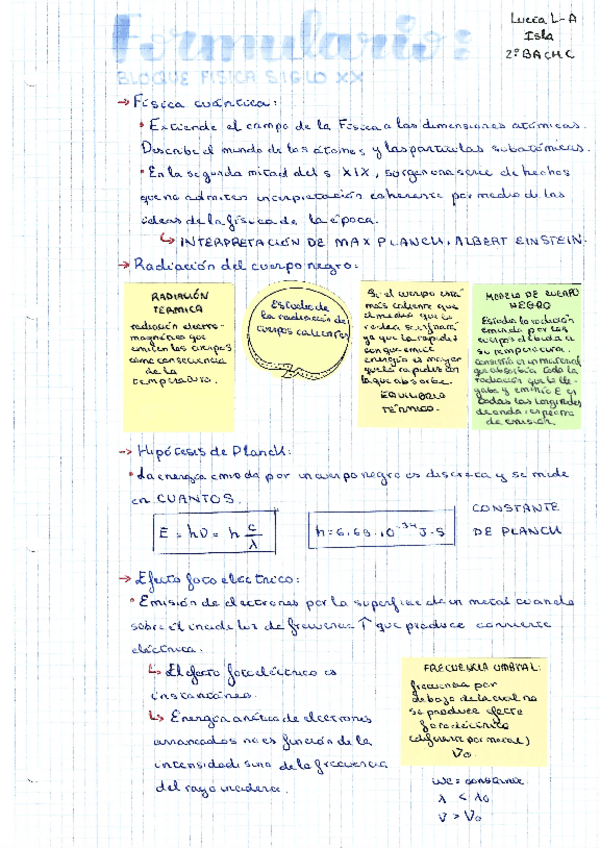 Formulario:
BLOQUE FISICA SIGLO XX
Lucía L-A
Isla
2º BACH C
→ Física cuántica:
• Extiende el campo de la Física a las dimensiones atómicas.
Describe el mundo de los átomos y las partículas subatómicas.
• En la segunda mitad del s XIX, surgen una serie de hechos
que no admiten interpretación coherente por medio de las
ideas de la física de la época.
↳ INTERPRETACIÓN DE MAX PLANCK, ALBERT EINSTEIN.
→ Radiación del cuerpo negro:
RADIACIÓN
TERMICA
radiación electro-
magnética que
emiten los cuerpos
como consecuencia
de la
temperatura.
Estudio de
la radiación de
cuerpos calientes
Si el cuerpo está
más caliente que
el medio que lo
rodea se enfriará
ya que la rapidez
con que emite
energía es mayor
que la rapidez con
la que absorbe.
EQUILIBRIO
TÉRMICO.
MODELO DE CUERPO
NEGRO
Estudia la radiación
emitida por los
cuerpos debida a
su temperatura.
consistía en un material
que absorbía toda la
radiación que le lle-
gaba y emitía E en
todas las longitudes
de onda: espectro
de emisión.
→ Hipótesis de Planck:
• La energía emitida por un cuerpo negro es discreta y se mide
en CUANTOS.
E = hν = h c/λ
h = 6,63 · 10⁻³⁴ J·S
CONSTANTE
DE PLANCK
→ Efecto fotoeléctrico:
• Emisión de electrones por la superficie de un metal cuando
sobre él incide luz de frecuencia ↑ que produce corriente
eléctrica.
↳ El efecto fotoeléctrico es
instantáneo.
↳ Energía cinética de electrones
arrancados no es función de la
intensidad sino de la frecuencia
del rayo incidente.
FRECUENCIA UMBRAL:
frecuencia por
debajo de la cual no
se produce efecto
fotoeléctrico
(diferente por metal)
ν₀
λ < λ₀
ν > ν₀